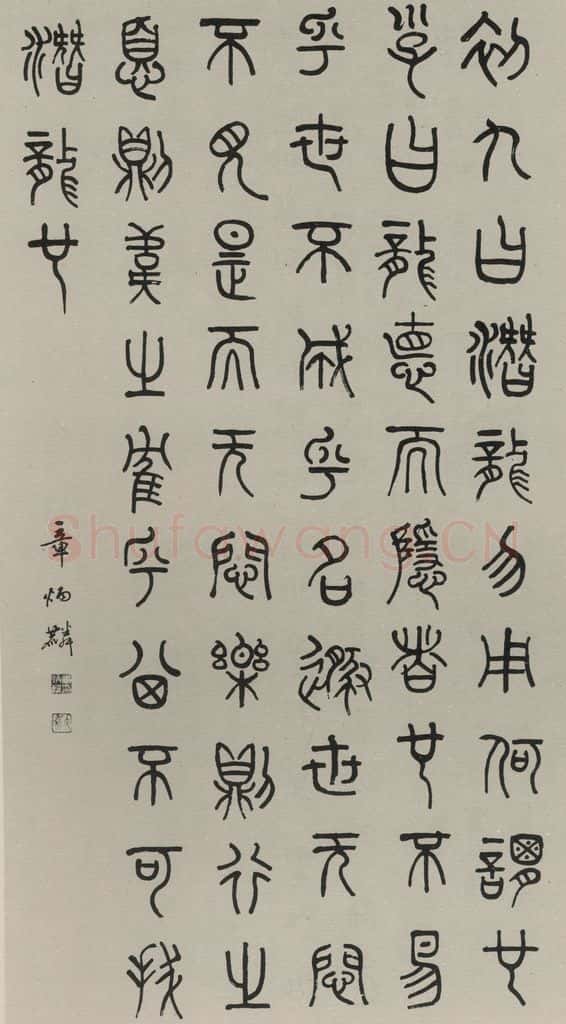 初九曰潛龍勿用何謂也
子曰龍德而隱者也不易
乎世不成乎名遯世无悶
不見是而无悶樂則行之
憂則違之隺乎其不可拔
潛龍也
章炳麟
Shufawang.CN